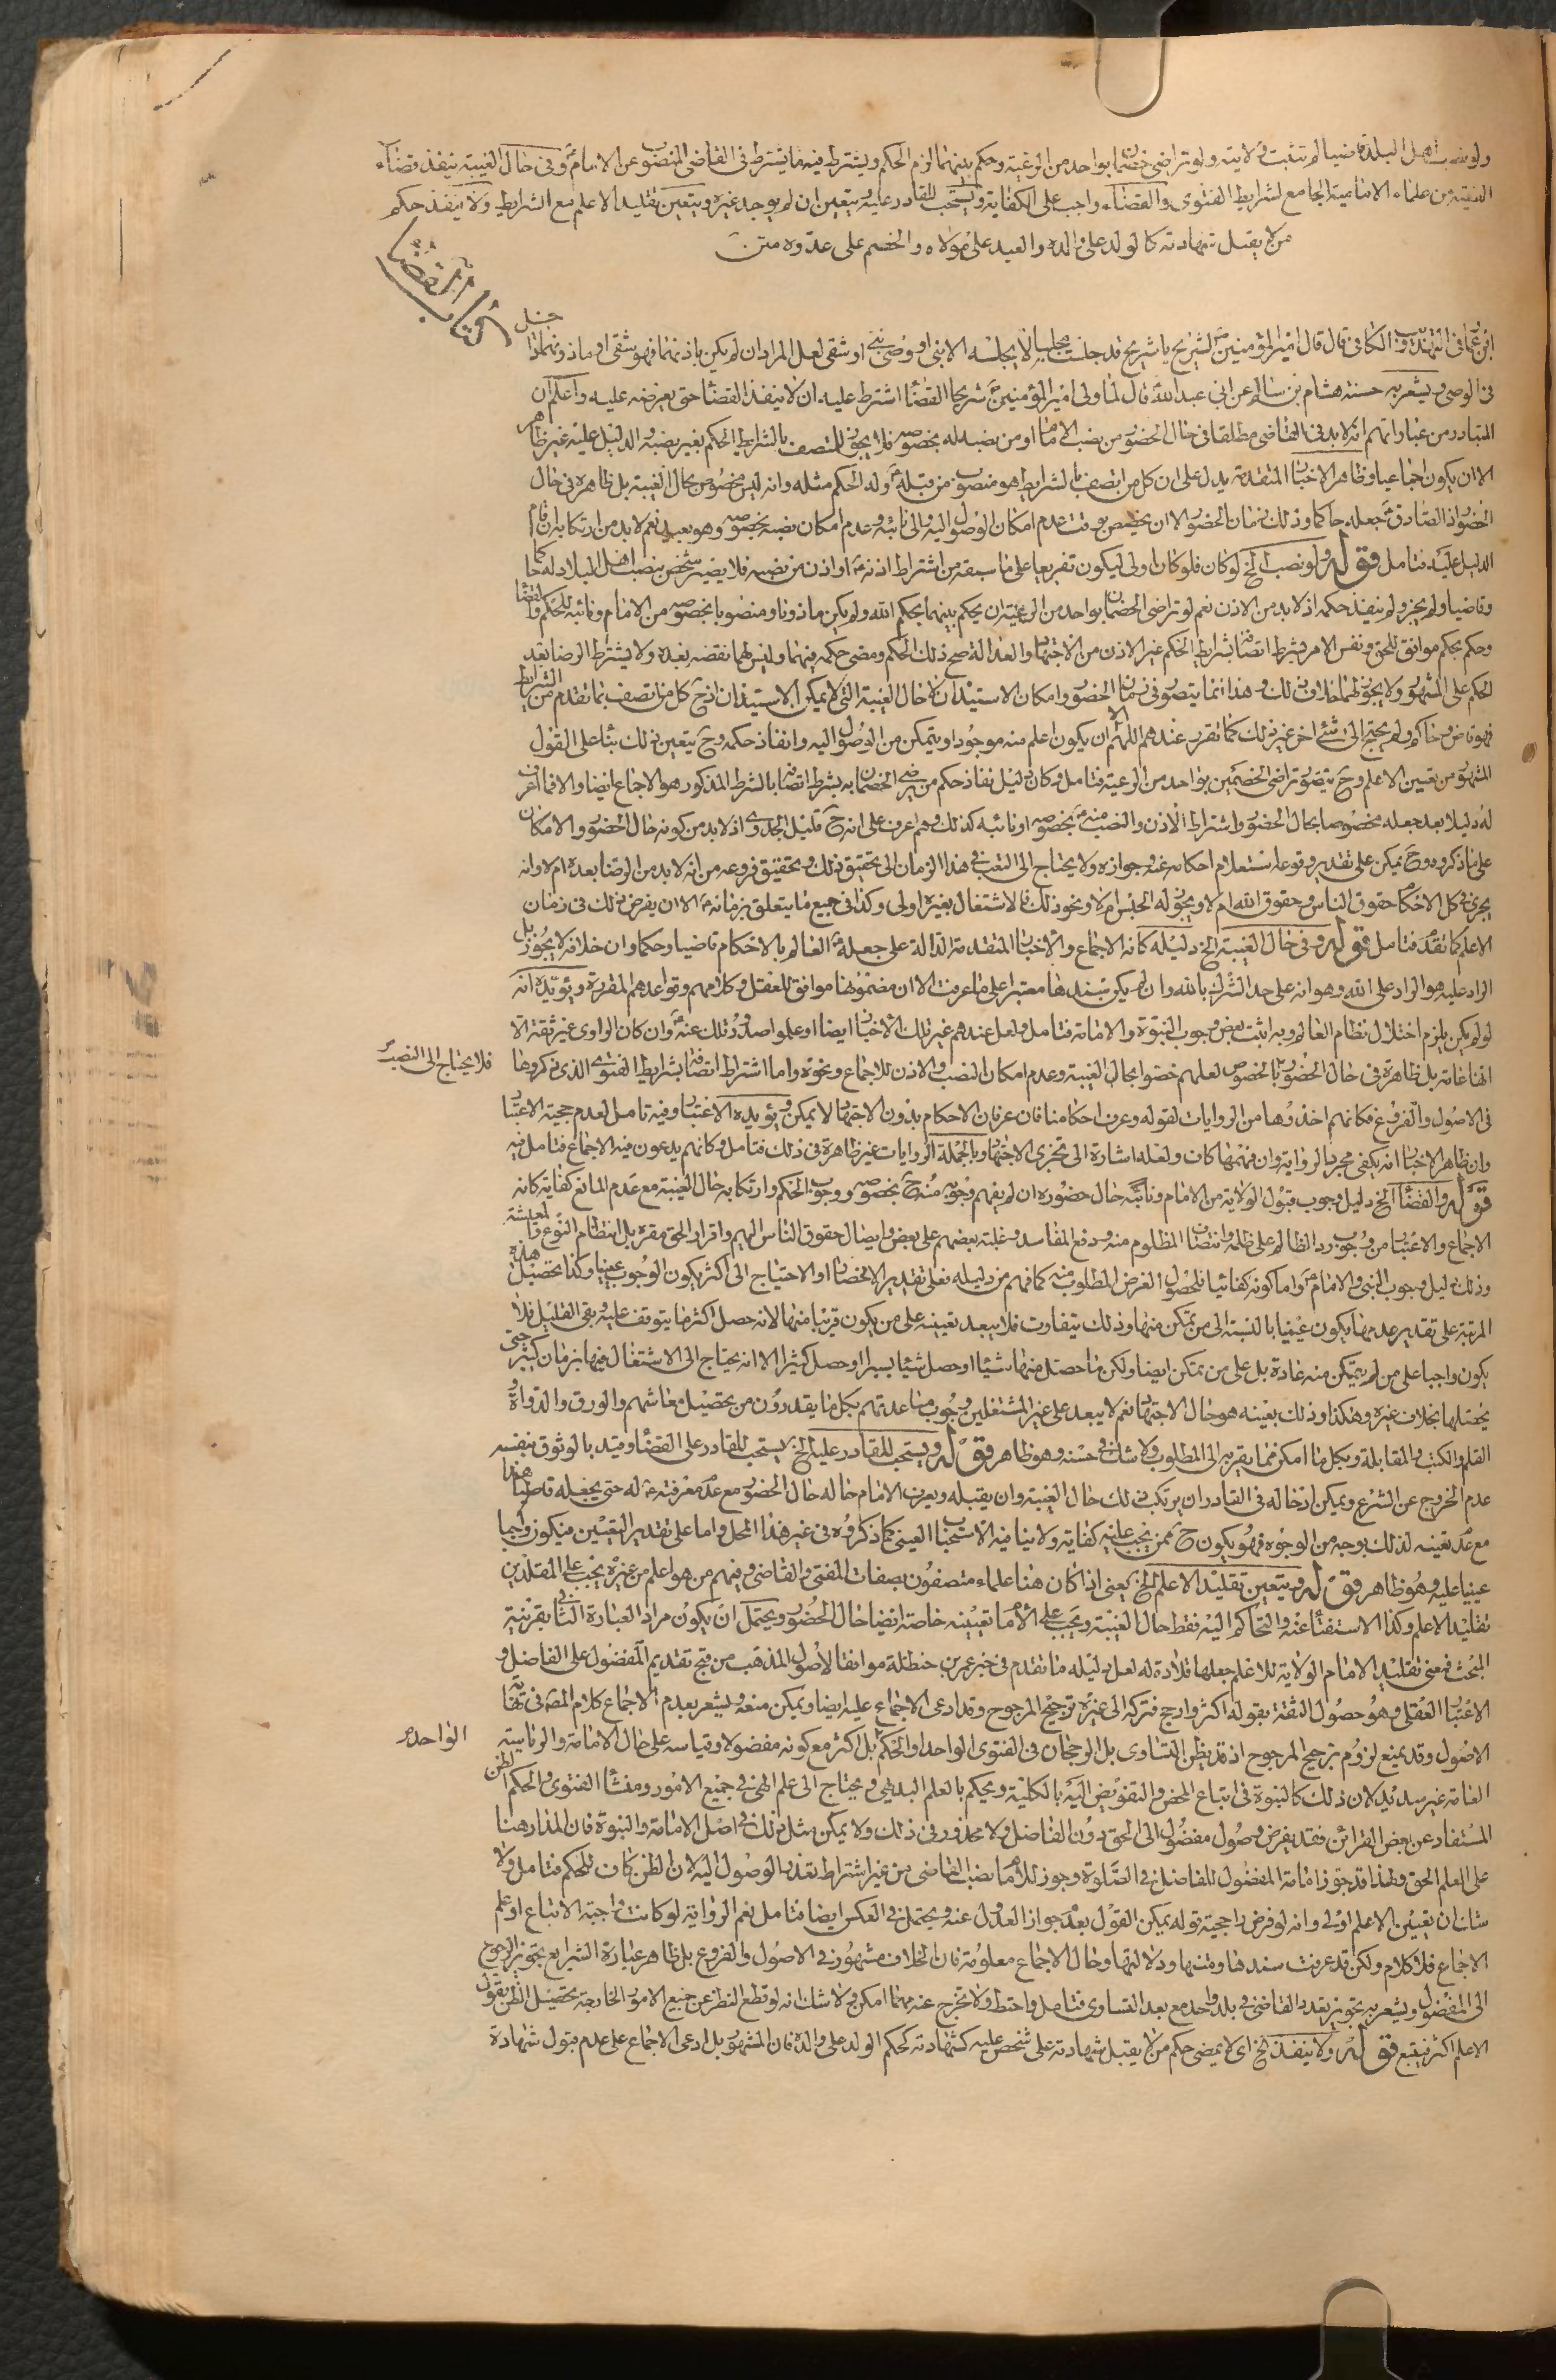 ولو نصب اهل البلد قاضيا لم تثبت ولايته ولو تراضى خصمان بواحد من الرعية وحكم بينهما لزم الحكم ويشترط فيه ما يشترط فى القاضى المنصوب عن الامام ع وفى حال الغيبة ينفذ قضاء
الفقيه من علماء الامامية الجامع لشرايط الفتوى والقضاء واجب على الكفاية ويستحب للقادر عليه ويتعين ان لم يوجد غيره ويتعين تقليد الاعلم مع الشرايط ولا ينفذ حكم
من لا يقبل شهادته كالولد على والده والعبد على مولاه والخصم على عدوه متن
كتاب القضاء
ابن عمار فى التهذيب والكافى قال قال امير المؤمنين ع لشريح يا شريح قد جلست مجلسا لا يجلسه الا نبى او وصى نبى او شقى لعل المراد ان لم يكن باذنهما فهو شقى او ماذونهما داخل
فى الوصى ويشعر به حسنة هشام بن سالم عن ابى عبد الله ع قال لما ولى امير المؤمنين ع شريحا القضاء اشترط عليه ان لا ينفذ القضاء حتى يعرضه عليه واعلم ان
المتبادر من عباراتهم انه لا بد فى القاضى مطلقا فى حال الحضور من نصب الامام او من نصبه له بخصوصه فلا يجوز للمتصف بالشرايط الحكم بغير نصبه والدليل عليه غير ظاهر
الا ان يكون اجماعيا وظاهر الاخبار المتقدمة يدل على ان كل من اتصف بالشرايط هو منصوب من قبله ع وله الحكم مثله وانه ليس مخصوص بحال الغيبة بل ظاهره فى حال
الحضور اذ الصادق ع جعله حاكما وذلك زمان الحضور الا ان يخصص بوقت عدم امكان الوصول اليه والى نائبه وعدم امكان نصبه بخصوصه وهو بعيد نعم لا بد من ارتكابه ان قام
الدليل عليه فتامل قوله ولو نصب الخ لو كان فلو كان اولى ليكون تفريعا على ما سبقه من اشتراط اذنه ع او اذن من نصبه فلا يصير شخص بنصب اهل البلاد له حاكما
وقاضيا ولم يجز ولم ينفذ حكمه اذ لا بد من الاذن نعم لو تراضى الخصمان بواحد من الرعية ان يحكم بينهما بحكم الله ولم يكن ماذونا ومنصوبا بخصوصه من الامام ونائبه للحكم والقضاء
وحكم بحكم موافق للحق ونفس الامر بشرط اتصافه بشرايط الحكم غير الاذن من الاجتهاد والعدالة صح ذلك الحكم ومضى حكمه فيهما وليس لهما نقضه بعده ولا يشترط الرضا بعد
الحكم على المشهور ولا يجوز لهما خلاف ذلك وهذا انما يتصور فى زمان الحضور وامكان الاستيذان لا حال الغيبة التى لا يمكن الاستيذان اذ ح كل من اتصف بما تقدم من الشرايط
فهو قاض وحاكم ولم يحتج الى شئ اخر غير ذلك كما تقرر عندهم اللهم الا ان يكون اعلم منه موجودا ويتمكن من الوصول اليه وانفاذ حكمه وح يتعين ذلك بناء على القول
المشهور من تعيين الاعلم وح يتصور تراضى الخصمين بواحد من الرعية فتامل وكان دليل نفاذ حكم من رضى الخصمان به بشرط اتصافه بالشرط المذكور هو الاجماع ايضا والا فما اعرف
له دليلا بعد جعله مخصوصا بحال الحضور واشتراط الاذن والنصب منه ع بخصوصه او نائبه كذلك وهم اعرف على انه ح قليل الجدوى اذ لا بد من كونه حال الحضور والامكان
على ما ذكروه وح يمكن على تقدير وقوعه استعلام احكامه عنه وجوازه ولا يحتاج الى التعب فى هذا الزمان الى تحقيق ذلك وتحقيق فروعه من انه لا بد من الرضا بعده ام لا وانه
يجرى فى كل الاحكام حقوق الناس وحقوق الله ام لا ويجوز له الحبس ام لا ونحو ذلك فالاشتغال بغيره اولى وكذا فى جميع ما يتعلق بزمانه ع الا ان يفرض ذلك فى زمان
الاعلم كما تقدم فتامل قوله وفى حال الغيبة الخ دليله كانه الاجماع والاخبار المتقدمة الدالة على جعله ع العالم بالاحكام قاضيا وحكما وان خلافه لا يجوز بل
الراد عليه هو الراد على الله وهو انه على حد الشرك بالله وان لم يكن سندها معتبرا على ما عرفت الا ان مضمونها موافق للعقل وكلامهم وقواعدهم المقررة ويؤيده انه
لو لم يكن يلزم اختلال نظام العالم وبه اثبت بعض وجوب النبوة والامامة فتامل ولعل عندهم غير تلك الاخبار ايضا او علموا صدور ذلك عنه ع وان كان الراوى غير ثقة الا
انها عامة بل ظاهرة فى حال الحضور بالخصوص لعلهم خصوا بحال الغيبة وعدم امكان النصب والاذن للاجماع ونحوه واما اشتراط اتصافه بشرايط الفتوى الذى ذكروها
فلا يحتاج الى النصب
فى الاصول والفروع فكانهم اخذوها من الروايات لقوله وعرف احكامنا فان عرفان الاحكام بدون الاجتهاد لا يمكن ويؤيده الاعتبار وفيه تامل لعدم حجية الاعتبار
وان ظاهر الاخبار انه يكفى مجرد الرواية وان فهمها كاف ولعله اشارة الى تجزى الاجتهاد وبالجملة الروايات غير ظاهرة فى ذلك فتامل وكانهم يدعون فيه الاجماع فتامل فيه
قوله والقضاء الخ دليل وجوب قبول الولاية من الامام ونائبه حال حضوره ان لم يفهم وجوبه منه ح بخصوصه ووجوب الحكم وارتكابه حال الغيبة مع عدم المانع كفاية كانه
الاجماع والاعتبار من وجوب رد الظالم على ظلمه وانتصاف المظلوم منه ودفع المفاسد وغلبة بعضهم على بعض وايصال حقوق الناس اليهم واقرار الحق مقره بل انتظام النوع والمعيشة
وذلك دليل وجوب النبى والامام ع واما كونه كفائيا فلحصول الغرض المطلوب منه كما فهم من دليله فعلى تقدير الانحصار او الاحتياج الى اكثر يكون الوجوب عينيا وكذا تحصيل هذه
المرتبة على تقدير عدمها يكون عينيا بالنسبة الى من تمكن منها وذلك يتفاوت فلا يبعد تعيينه على من يكون قريبا منها لانه حصل اكثر ما يتوقف عليه وبقى القليل فلا
يكون واجبا على من لم يتمكن منه عادة بل على من تمكن ايضا ولكن ما حصل منها شيئا او حصل شيئا يسيرا او حصل كثيرا الا انه يحتاج الى الاشتغال فيها بزمان كثير حتى
يحصلها بخلاف غيره وهكذا وذلك بعينه هو حال الاجتهاد نعم لا يبعد على غير المشتغلين وجوب مساعدتهم بكل ما يقدرون من تحصيل معاشهم والورق والدواة و
القلم والكتب والمقابلة وبكل ما امكن فما يقربه الى المطلوب ولا شك فى حسنه وهو ظاهر قوله ويستحب للقادر عليه الخ يستحب للقادر على القضاء وقيد بالوثوق بنفسه
عدم الخروج عن الشرع ويمكن ادخاله فى القادر ان يرتكب ذلك حال الغيبة وان يقبله ويعرف الامام حاله حال الحضور مع عدم معرفته ع له حتى يجعله قاضيا هذا
مع عدم تعينه لذلك بوجه من الوجوه فهو يكون ح ممن يجب عليه كفاية ولا ينافيه الاستحباب العينى كما ذكروه فى غير هذا المحل واما على تقدير التعيين فيكون واجبا
عينيا عليه وهو ظاهر قوله ويتعين تقليد الاعلم الخ يعنى اذا كان هنا علماء متصفون بصفات المفتى والقاضى وفيهم من هو اعلم من غيره يجب على المقلدين
تقليد الاعلم وكذا الاستفتاء عنه والتحاكم اليه فقط حال الغيبة ويجب على الامام تعيينه خاصة ايضا حال الحضور ويحتمل ان يكون مراد العبارة الثانى بقرينة
البحث فمعنى تقليد الامام الولاية للاعلم جعلها قلادة له لعل دليله ما تقدم فى خبر عمر بن حنظلة موافقا لاصول المذهب من قبح تقديم المفضول على الفاضل و
الاعتبار العقلى وهو حصول الثقة بقوله اكثر وارجح فتركه الى غيره ترجيح المرجوح وقد ادعى الاجماع عليه ايضا ويمكن منعه ويشعر بعدم الاجماع كلام المصنف فى نهاية
الاصول وقد يمنع لزوم ترجيح المرجوح اذ قد يظن التساوى بل الرجحان فى الفتوى الواحد او الحكم بل اكثر مع كونه مفضولا وقياسه على حال الامامة والرئاسة
الواحد
العامة غير سديد لان ذلك كالنبوة فى اتباع المحض والتفويض اليه بالكلية ويحكم بالعلم البديهى ويحتاج الى علم الهى فى جميع الامور ومنشأ الفتوى والحكم الظن
المستفاد عن بعض القرائن فقد يفرض وصول مفضول الى الحق دون الفاضل ولا محذور فى ذلك ولا يمكن مثل ذلك فى اصل الامامة والنبوة فان المدار هنا
على العلم الحق ولهذا قد جوز امامة المفضول للفاضل فى الصلوة وجوز للامام نصب القاضى من غير اشتراط تعذر الوصول اليه لان الظن كاف للحكم فتامل ولا
شك ان تعيين الاعلم اولى وانه لو فرض راجحية قوله يمكن القول بعدم جواز العدول عنه ويحتمل فى العكس ايضا فتامل نعم الرواية لو كانت واجبة الاتباع او علم
الاجماع فلا كلام ولكن قد عرفت سندها ومتنها ودلالتها وحال الاجماع معلومة فان الخلاف مشهور فى الاصول والفروع بل ظاهر عبارة الشرايع تجويز الرجوع
الى المفضول ويشعر به تجويز تعدد القاضى فى بلد واحد مع بعد التساوى فتامل واحتط ولا تخرج عنه مهما امكن ولا شك انه لو قطع النظر عن جميع الامور الخارجة تحصيل الظن بقول
الاعلم اكثر فيتبع قوله ولا ينفذ الخ اى لا يمضى حكم من لا يقبل شهادته على شخص عليه كشهادته كحكم الولد على والده فان المشهور بل ادعى الاجماع على عدم قبول شهادة